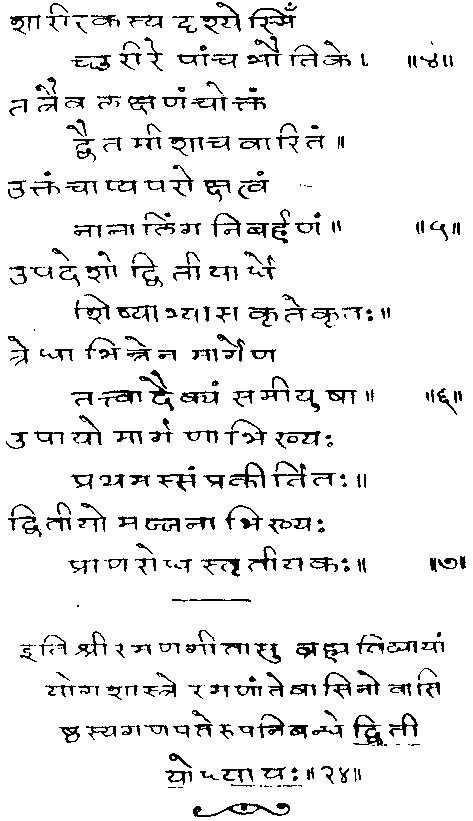 शारीरकस्य दृश्येस्मिँ
च्छरीरे पांचभौतिके। ॥४॥
तत्रैव लक्षणंचोक्तं
द्वैतमीशाच वारितं॥
उक्तंचाप्यपरोक्षत्वं
नानालिंग निबर्हणं॥ ॥५॥
उपदेशो द्वितीयार्धे
शिष्याभ्यास कृतेकृतः॥
त्रेधाभिन्नेन मार्गेण
तत्त्वादैक्यं समीयुषा॥ ॥६॥
उपायोमार्गणाभिख्यः
प्रथमस्संप्रकीर्तितः॥
द्वितीयो मज्जनाभिख्यः
प्राणरोधस्तृतीयकः॥ ॥७॥
इति श्रीरमणगीतासु ब्रह्मविद्यायां
योगशास्त्रे रमणांतेवासिनो वासि
ष्ठस्यगणपतेरुपनिबन्धे द्विती
योध्यायः॥२४॥